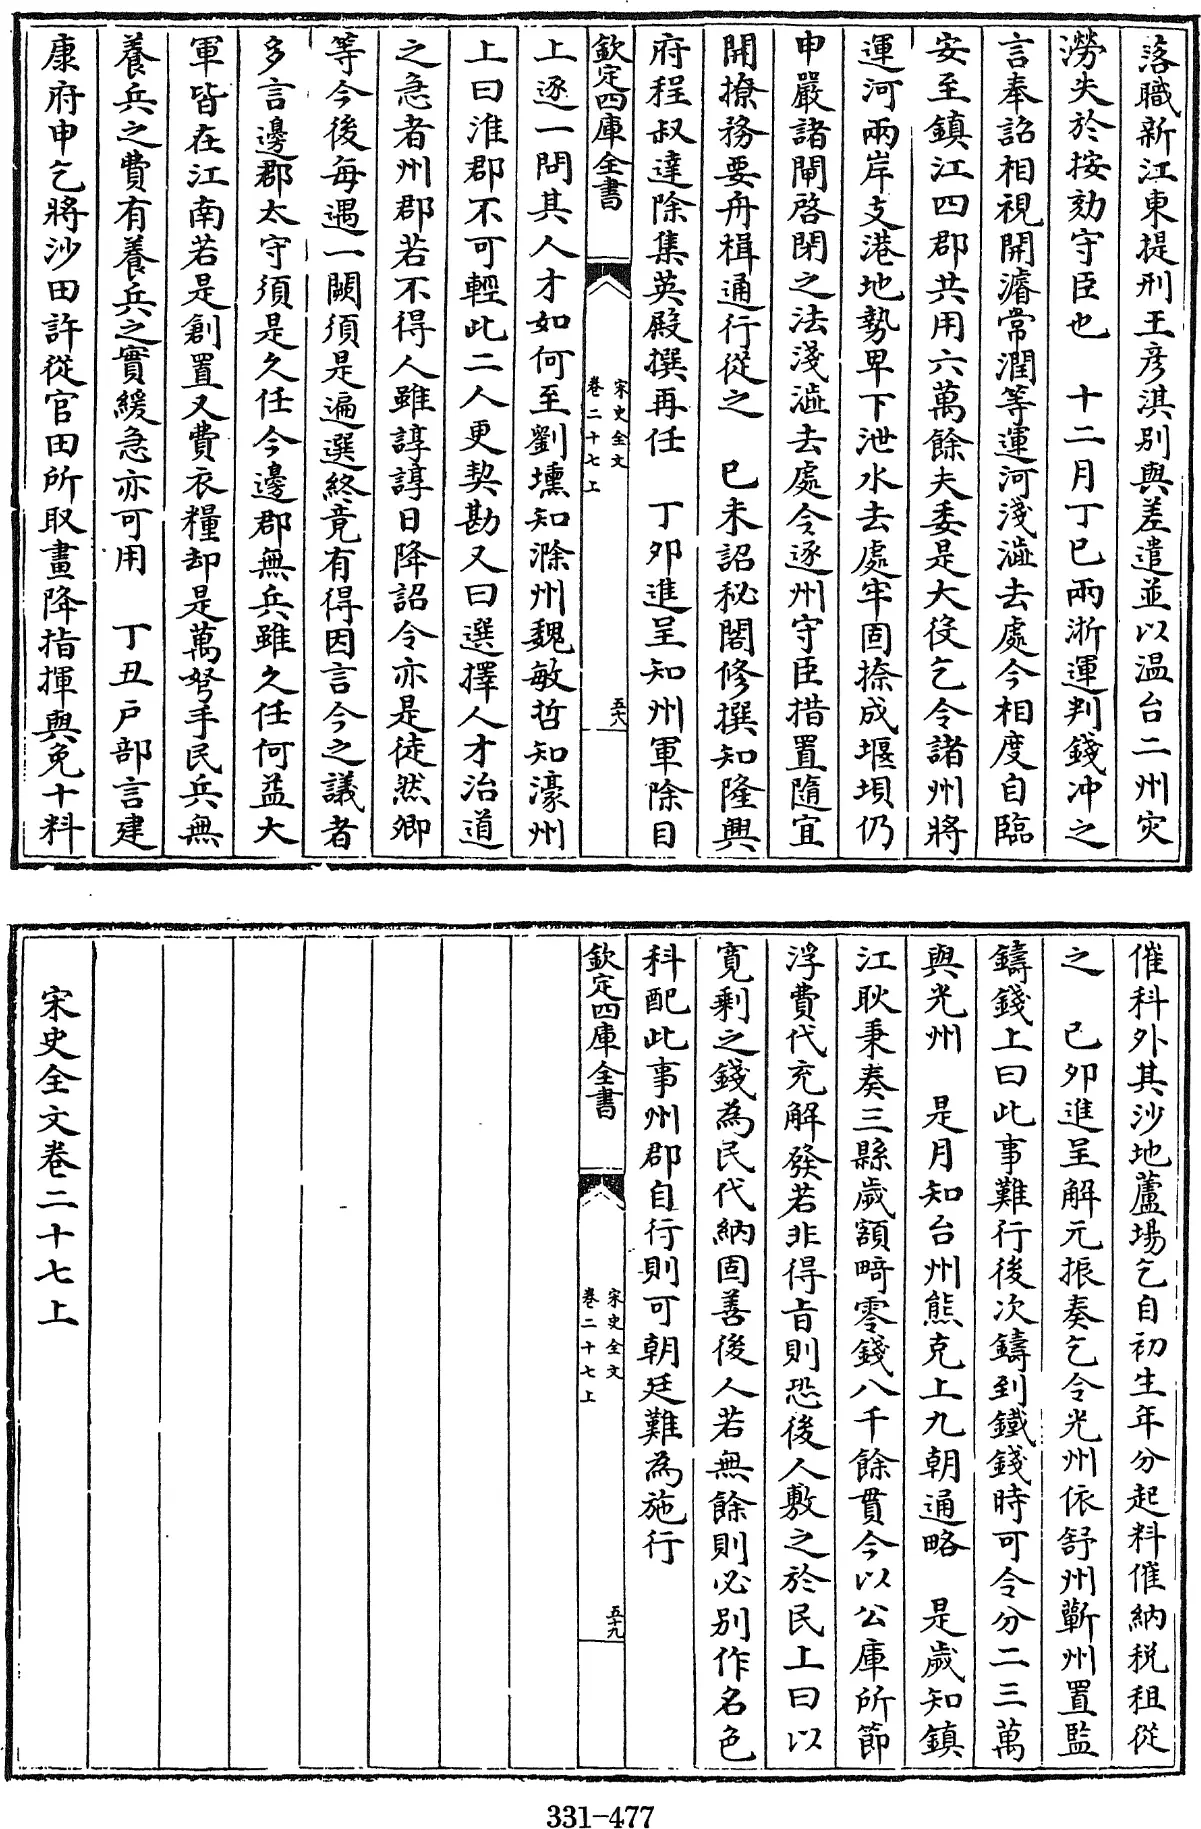 落職新江東提刑王彥淇別與差遣並以温台二州災
澇失於按劾守臣也　十二月丁巳兩浙運判錢冲之
言奉詔相視開濬常潤等運河淺澁去處今相度自臨
安至鎮江四郡共用六萬餘夫委是大役乞令諸州將
運河兩岸支港地勢卑下泄水去處牢固捺成堰垻仍
申嚴諸閘啓閉之法淺澁去處令逐州守臣措置隨宜
開撩務要舟楫通行從之　已未詔秘閣修撰知隆興
府程叔達除集英殿撰再任　丁夘進呈知州軍除目
欽定四庫全書
宋史全文
卷二十七上
五十八
上逐一問其人才如何至劉壎知滁州魏敏哲知濠州
上曰淮郡不可輕此二人更契勘又曰選擇人才治道
之急者州郡若不得人雖諄諄日降詔令亦是徒然卿
等今後每遇一闕須是遍選終竟有得因言今之議者
多言邊郡太守須是久任今邊郡無兵雖久任何益大
軍皆在江南若是創置又費衣糧却是萬弩手民兵無
養兵之費有養兵之實緩急亦可用　丁丑戸部言建
康府申乞將沙田許從官田所取畫降指揮與免十料
催科外其沙地蘆場乞自初生年分起料催納税租從
之　己夘進呈解元振奏乞令光州依舒州蘄州置監
鑄錢上曰此事難行後次鑄到鐵錢時可令分二三萬
與光州　是月知台州熊克上九朝通略　是歲知鎮
江耿秉奏三縣歲額畸零錢八千餘貫今以公庫所節
浮費代充解發若非得旨則恐後人敷之於民上曰以
寛剩之錢為民代納固善後人若無餘則必別作名色
科配此事州郡自行則可朝廷難為施行
欽定四庫全書
宋史全文
卷二十七上
五十九
宋史全文卷二十七上
331-477